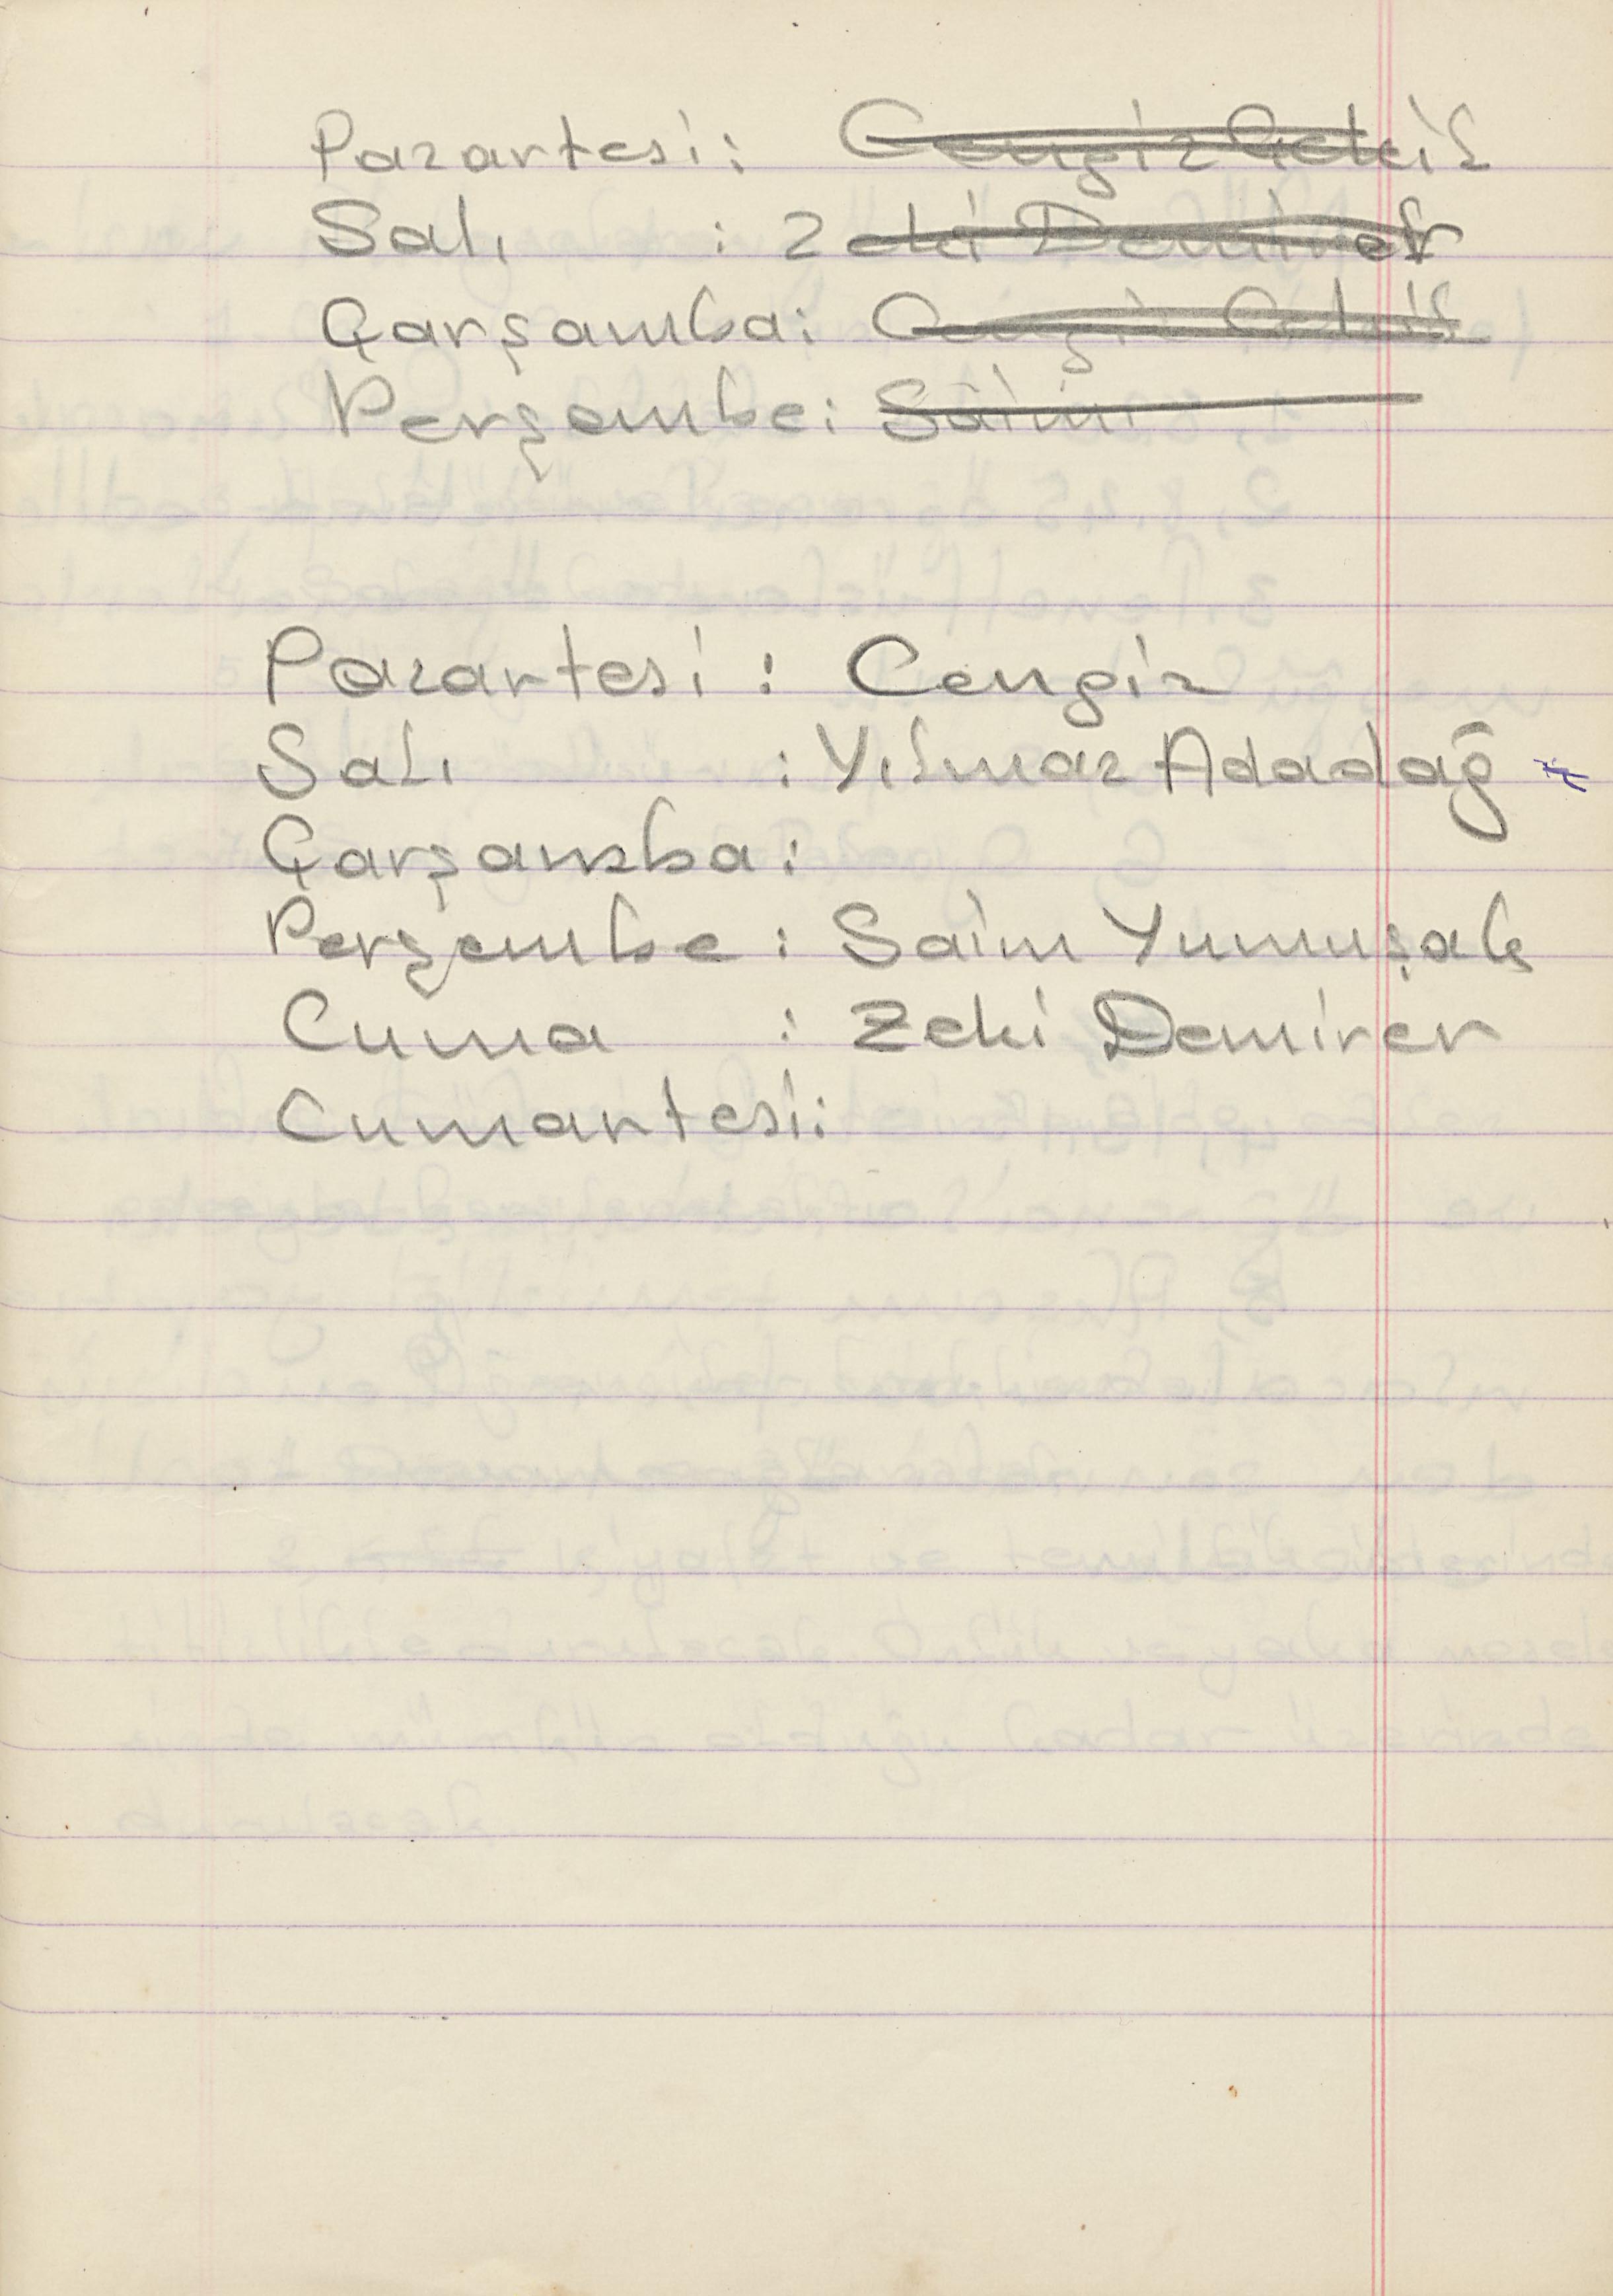 Pazartesi: Cengiz
Salı : Zeki Demirer
Çarşamba: Cengiz
Perşembe: Saim
Pazartesi : Cengiz
Salı : Yılmaz Adadağ
Çarşamba:
Perşembe : Saim Yumuşak
Cuma : Zeki Demirer
Cumartesi: